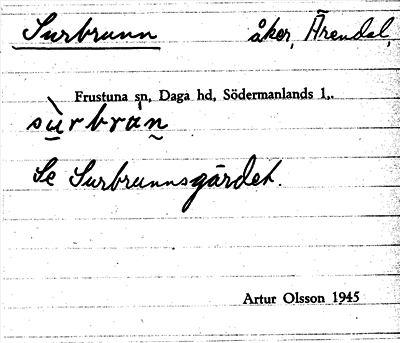 Surbrunn åker, Ärendal,
Frustuna sn, Daga hd, Södermanlands l..
sùrbràn
Se Surbrunnsgärdet.
Artur Olsson 1945